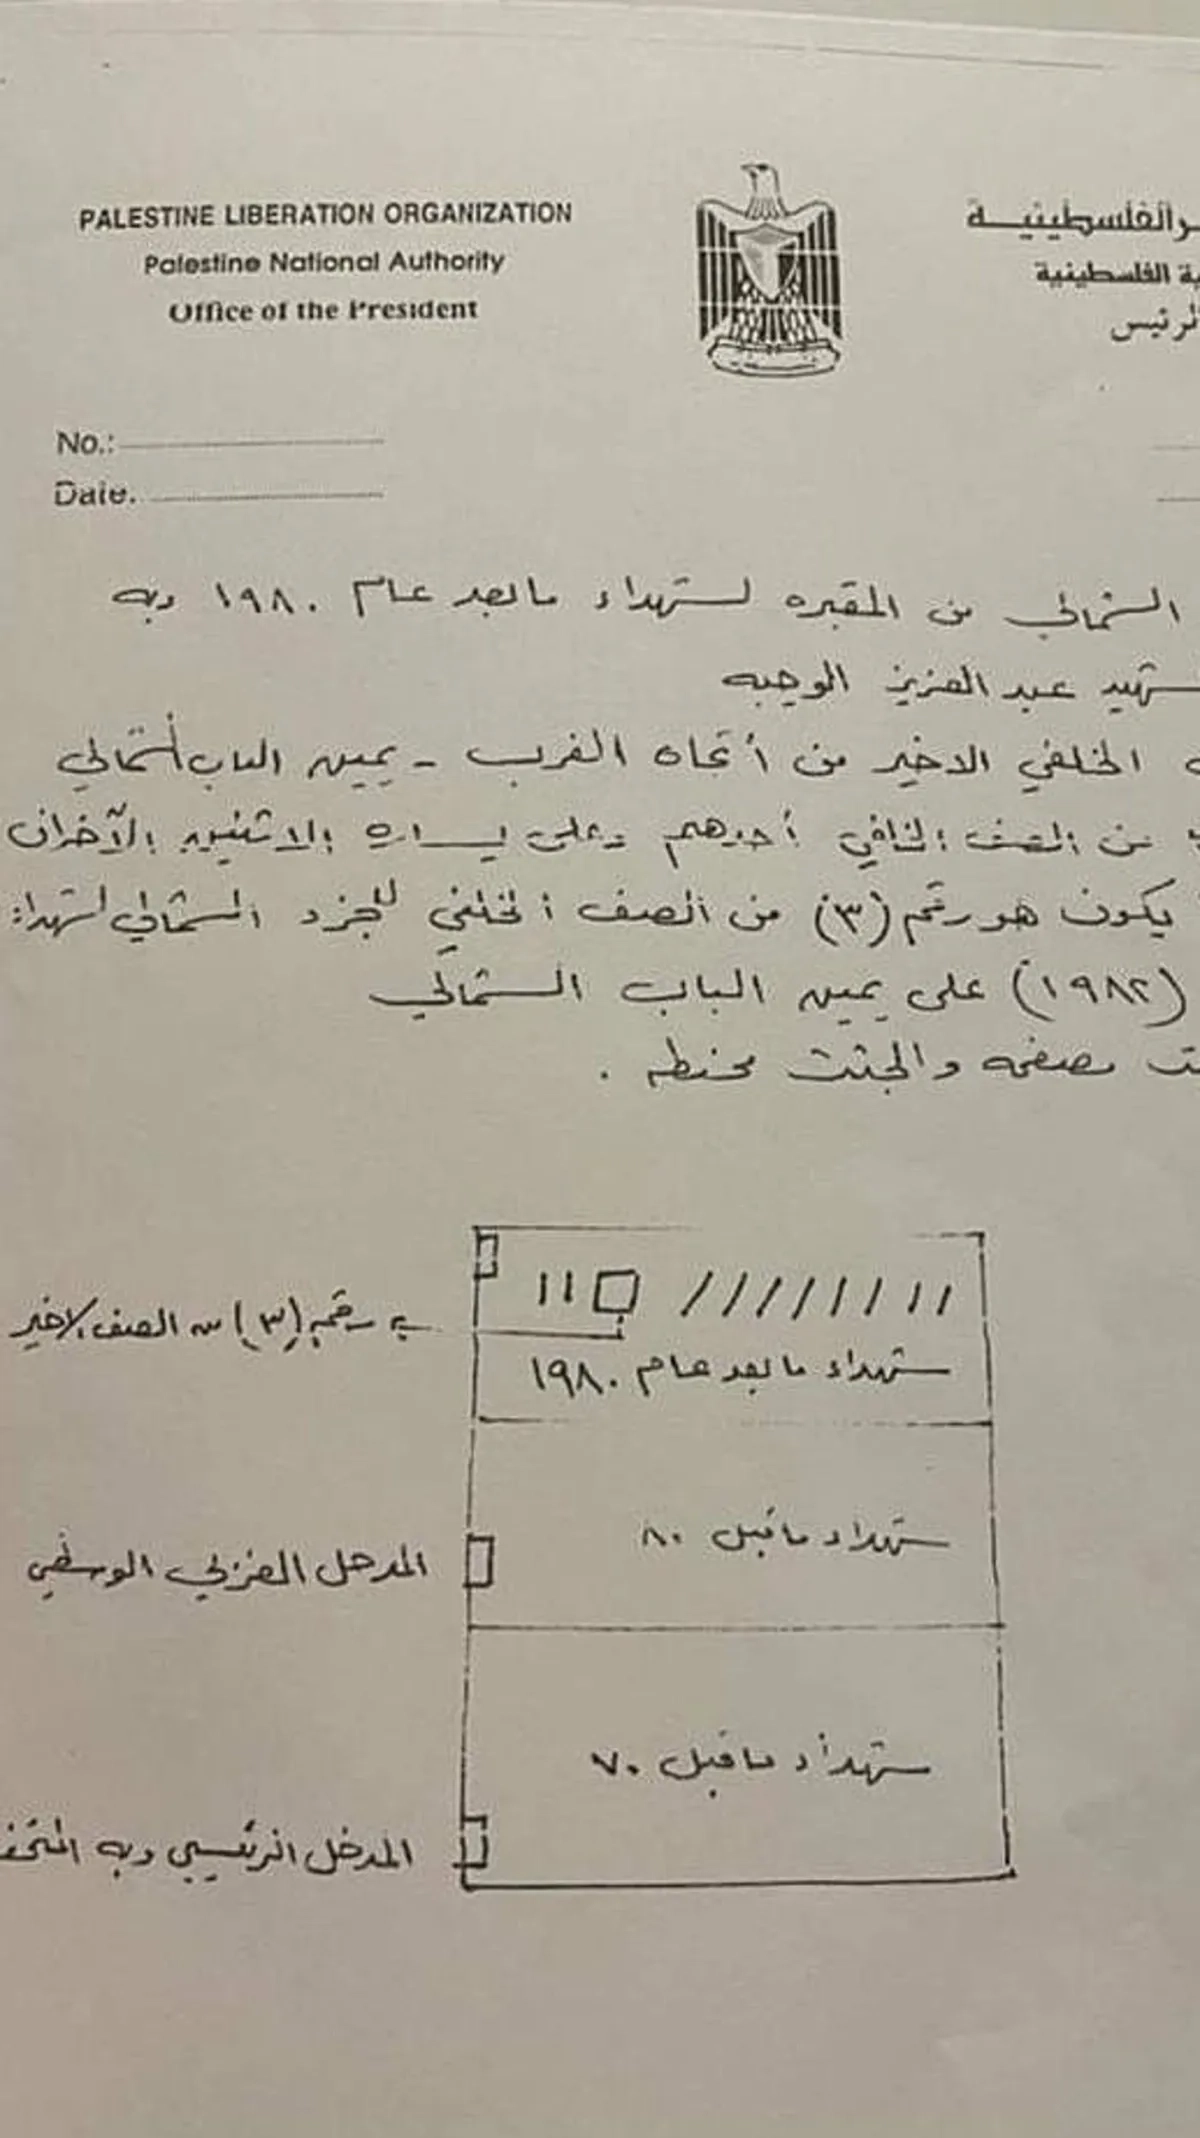 PALESTINE LIBERATION ORGANIZATION
Palestine National Authority
Office of the President
ـر الفلسطينيـة
ـية الفلسطينية
الرئيس
No.:
Date.
الشمالي من المقبره لشهداء ما بعد عام ١٩٨٠ وبه
شهيد عبد العزيز الوجيه
الخلفي الاخير من أتجاه الغرب - يمين الباب الشمالي
من الصف الخلفي أحدهم وعلى يساره الاثنين الآخران
يكون هو رقم (٣) من الصف الخلفي للجزء الشمالي لشهداء
(١٩٨٢) على يمين الباب الشمالي
مصفحه والجثث محنطه .
رقم (٣) من الصف الاخير
شهداء ما بعد عام ١٩٨٠
شهداء ما قبل ٨٠
المدخل الغربي الوسطي
شهداء ما قبل ٧٠
المدخل الرئيسي وبه المتحف